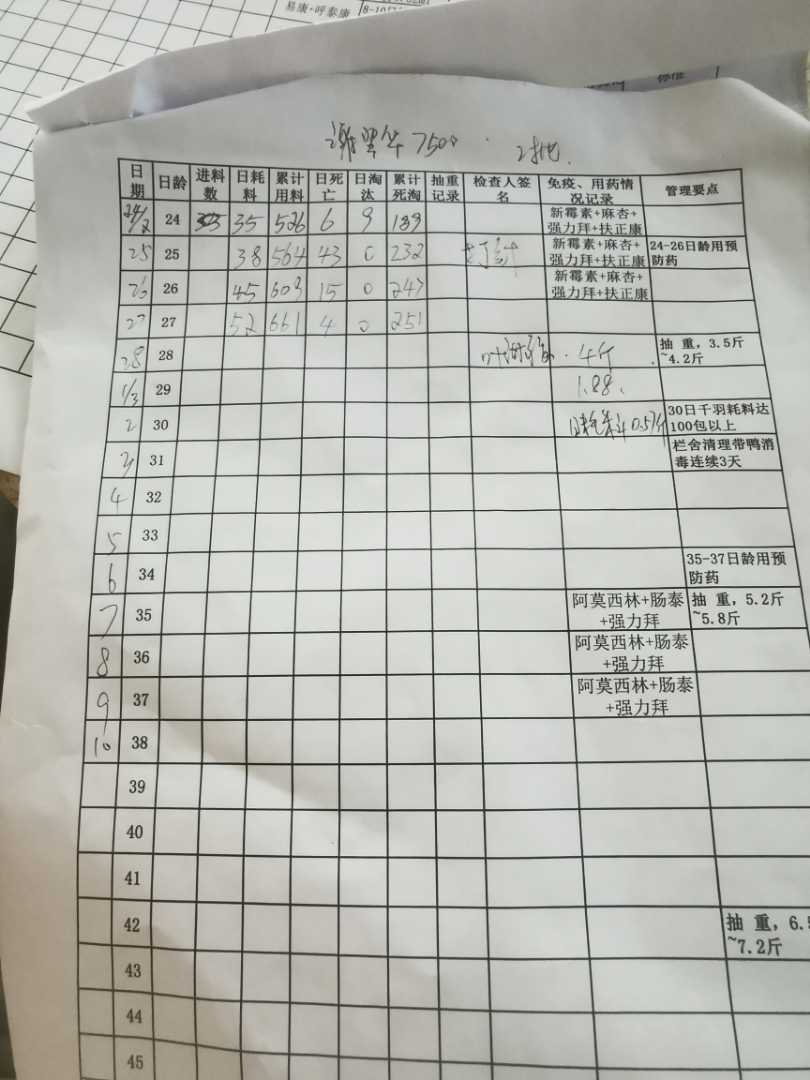 易康+呼泰康
8-10
标准
7500
日期 日龄 进料数 日耗料 累计用料 日死亡 日淘汰 累计死淘 抽重记录 检查人签名 免疫、用药情况记录 管理要点
24/2 24 35 526 6 9 189 新霉素+麻杏+强力拜+扶正康
25 25 38 564 43 0 232 打针 新霉素+麻杏+强力拜+扶正康 24-26日龄用预防药
26 26 45 609 15 0 247 新霉素+麻杏+强力拜+扶正康
27 27 52 661 4 0 251
28 28 4斤 抽 重，3.5斤~4.2斤
1/3 29 1.88
2 30 日耗料 0.57斤 30日千羽耗料达100包以上
3 31 栏舍清理带鸭消毒连续3天
4 32
5 33
6 34 35-37日龄用预防药
7 35 阿莫西林+肠泰+强力拜 抽 重，5.2斤~5.8斤
8 36 阿莫西林+肠泰+强力拜
9 37 阿莫西林+肠泰+强力拜
10 38
39
40
41
42 抽 重，6. ~7.2斤
43
44
45